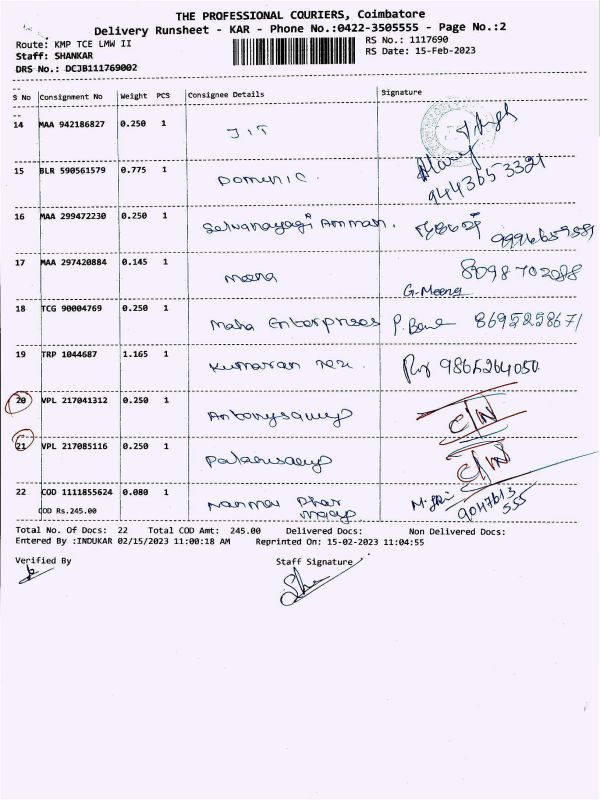 THE PROFESSIONAL COURIERS, Coimbatore
Delivery Runsheet - KAR - Phone No.:0422-3505555 - Page No.:2
Route: KMP TCE LMW II RS No.: 1117690
Staff: SHANKAR RS Date: 15-Feb-2023
DRS No.: DCJB111769002
S No Consignment No Weight PCS Consignee Details Signature
14 MAA 942186827 0.250 1 JIT
15 BLR 590561579 0.775 1 Domenic. 9443653321
16 MAA 299472230 0.250 1 Selvanayagi Amman.
17 MAA 297420884 0.145 1 Meena G.Meena 8098702088
18 TCG 90004769 0.250 1 Maha Enterprises 8695258671
19 TRP 1044687 1.165 1 Kumaran 9865264050
20 VPL 217041312 0.250 1 Antonysamy C/N
21 VPL 217085116 0.250 1 C/N
22 COD 1111855624 0.080 1 9047613
COD Rs.245.00 555
Total No. Of Docs: 22 Total COD Amt: 245.00 Delivered Docs: Non Delivered Docs:
Entered By :INDUKAR 02/15/2023 11:00:18 AM Reprinted On: 15-02-2023 11:04:55
Verified By Staff Signature